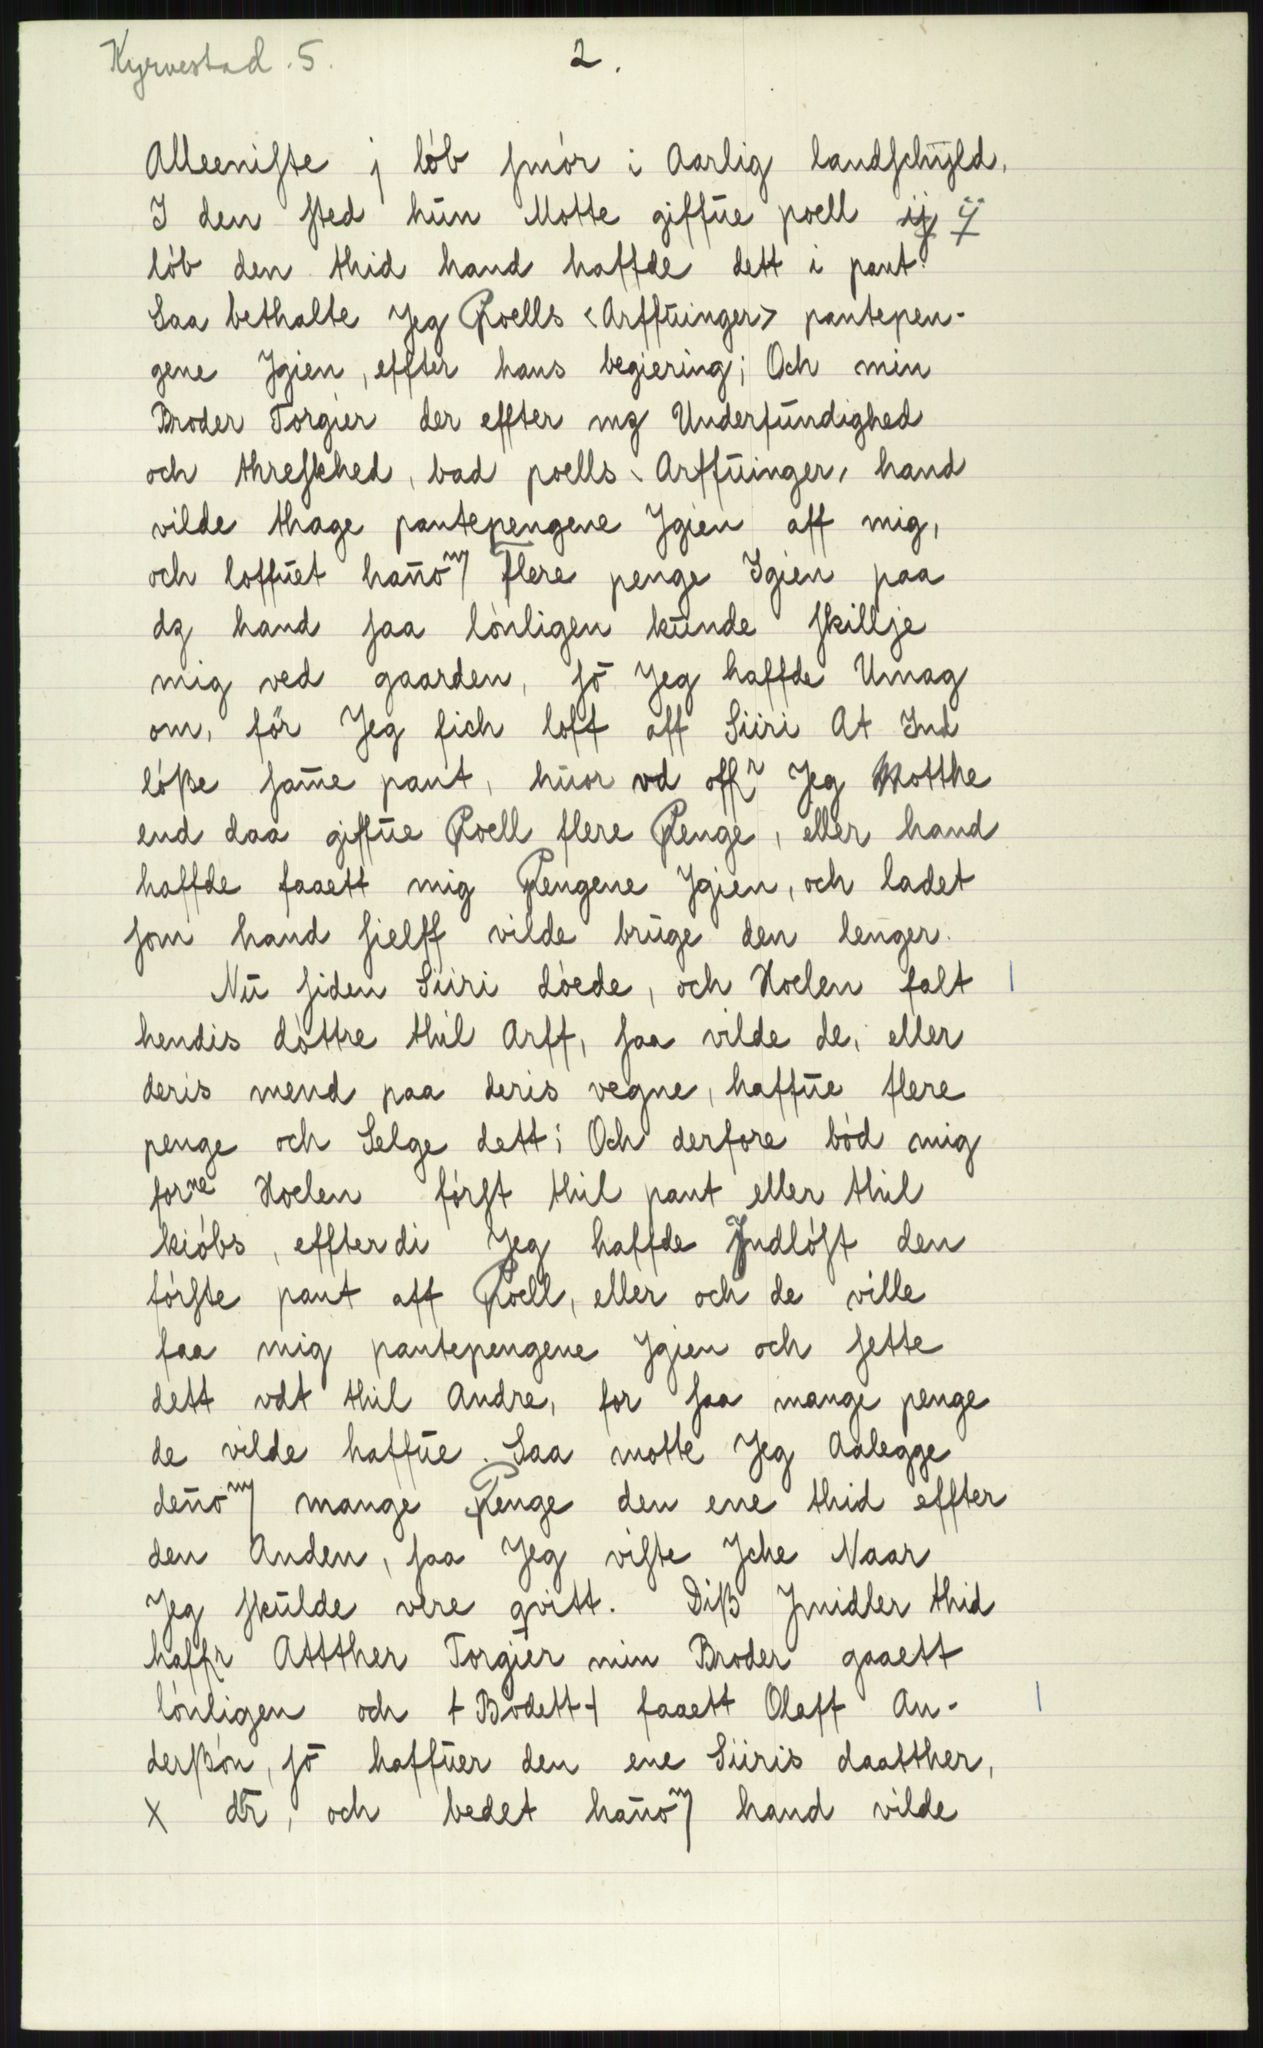 Kyrvestad. 5.
2.
Alleeniſte j løb ſmør i Aarlig landſchÿld.
I den ſted hūn Motte giffūe poell ij ij
løb den thid hand haffde dett i pant.
Saa bethalte Jeg Poells <Arffūinger> pantepen-
gene Jgien, effter hans begiering; Och min
Broder Torgier der effter mz Underfūndighed
och threſkhed, bad poells Arffūinger, hand
vilde thage pantepengene Jgien aff mig,
och loffūet han̄om flere penge Igien paa
dz hand ſaa lønligen kūnde ſkillje
mig ved gaarden, ſō Jeg haffde Umag
om, før Jeg fich loff aff Siiri At Ind
løße ſam̄e pant, hūor vd offr Jeg Motthe
end daa giffūe Poell flere Penge, eller hand
haffde faaett mig Pengene Jgien, och ladet
ſom hand ſielff vilde brūge den lenger.
Nū ſiden Siiri døede, och Hoelen falt
hendis døttre thil Arff, ſaa vilde de, eller
deris mend paa deris vegne, haffūe flere
penge och Selge dett; Och derfore bød mig
forne Hoelen førſt thil pant eller thil
kiøbs, effterdi Jeg haffde Jndløſt den
førſte pant aff Poell, eller och de ville
faa mig pantepengene Jgien och ſette
dett vdt thil Andre, for ſaa mange penge
de vilde haffūe. Saa motte Jeg Aalegge
den̄om mange Penge den ene thid effter
den Anden, ſaa Jeg viſte Jche Naar
Jeg ſkūlde vere qvitt. Diß Jmidler thid
haffr Attther Torgier min Broder gaaett
lønligen och + Bodett + faaett Olaff An-
derßøn, ſō haffūer den ene Siiris daatther,
x och bedet han̄om hand vilde